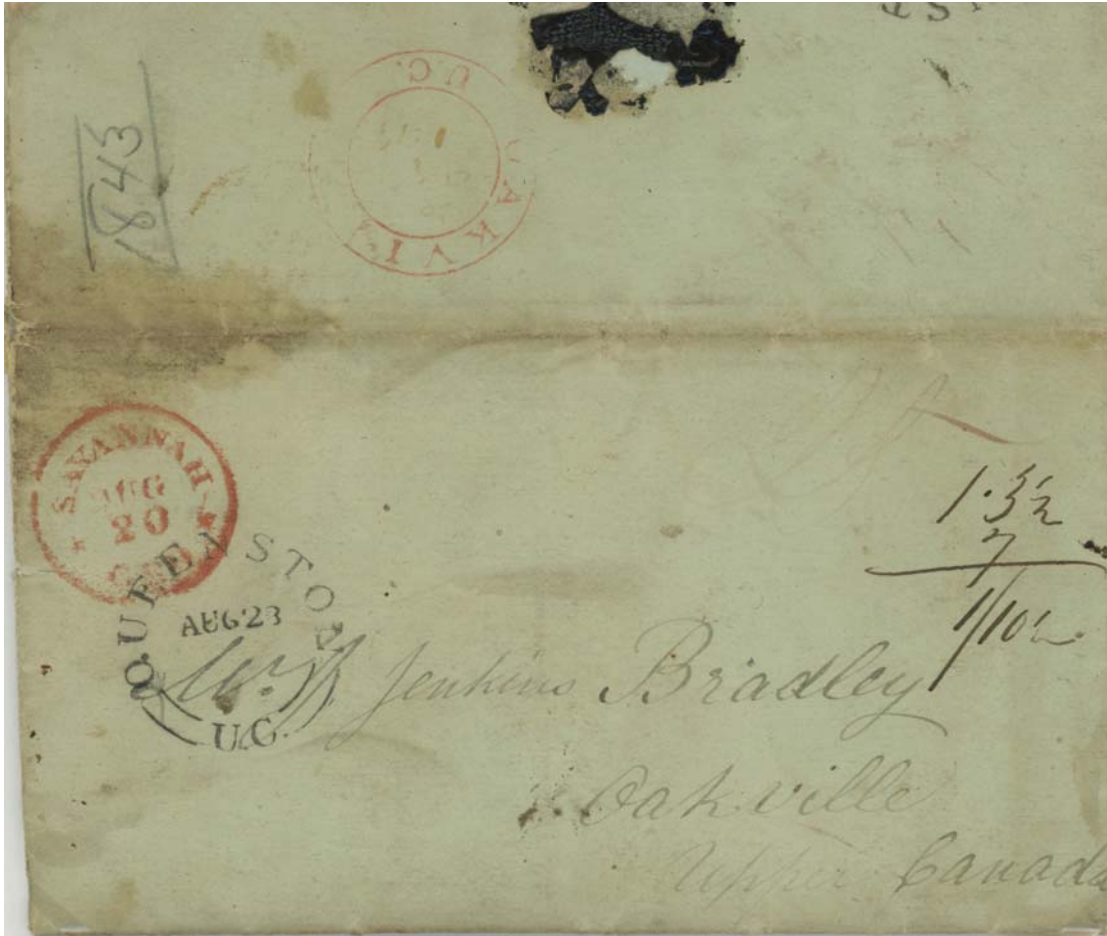 1843
U.C.
AKVI
SAVANNAH
AUG
20
QUEENSTON
AUG 23
U.C.
1.3½
7
1/10½
Mr Jenkins Bradley
Oakville
Upper Canada